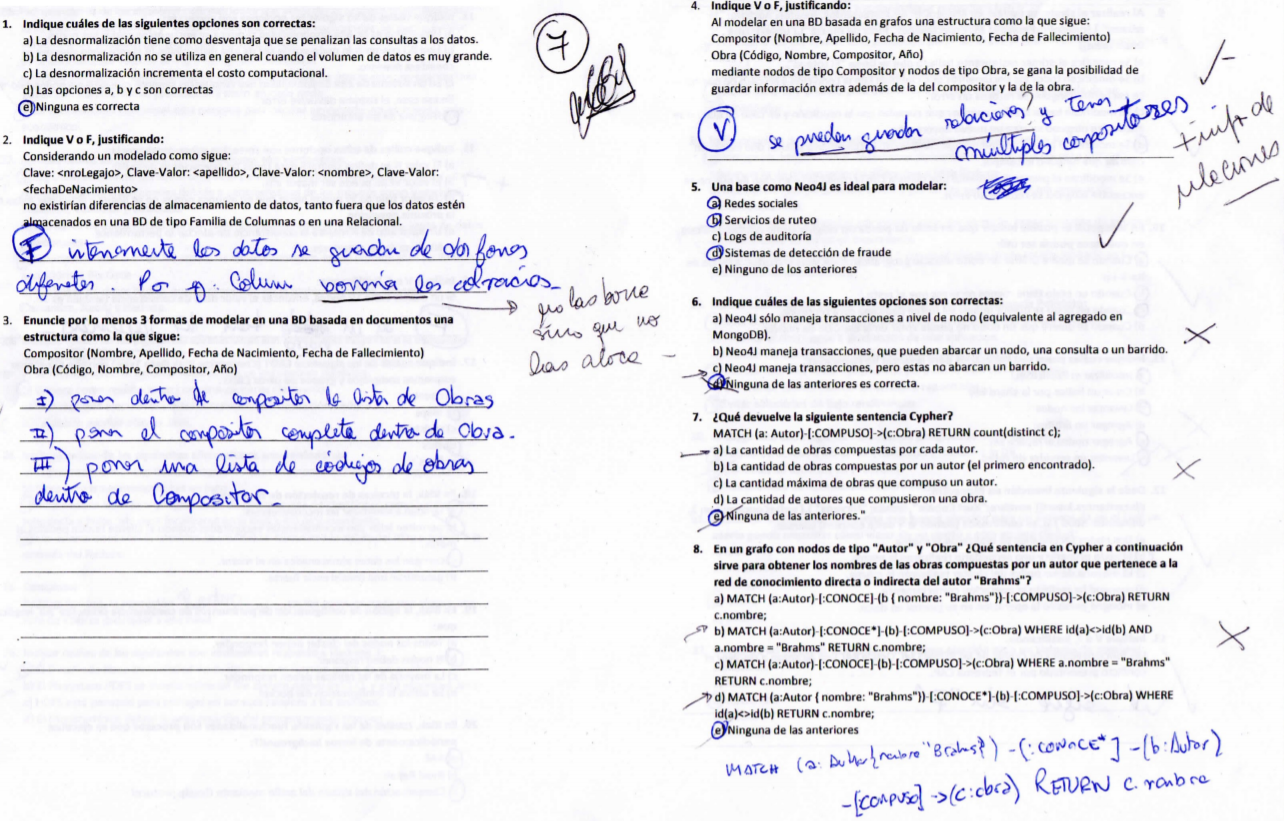 1. Indique cuáles de las siguientes opciones son correctas:
a) La desnormalización tiene como desventaja que se penalizan las consultas a los datos.
b) La desnormalización no se utiliza en general cuando el volumen de datos es muy grande.
c) La desnormalización incrementa el costo computacional.
d) Las opciones a, b y c son correctas
e) Ninguna es correcta
7
2. Indique V o F, justificando:
Considerando un modelado como sigue:
Clave: <nroLegajo>, Clave-Valor: <apellido>, Clave-Valor: <nombre>, Clave-Valor:
<fechaDeNacimiento>
no existirían diferencias de almacenamiento de datos, tanto fuera que los datos estén
almacenados en una BD de tipo Familia de Columnas o en una Relacional.
F internamente los datos se guardan de dos formas
diferentes. Por ej. Column borraría los
no las borra
sino que no
las aloca
3. Enuncie por lo menos 3 formas de modelar en una BD basada en documentos una
estructura como la que sigue:
Compositor (Nombre, Apellido, Fecha de Nacimiento, Fecha de Fallecimiento)
Obra (Código, Nombre, Compositor, Año)
I) poner dentro de compositor la lista de Obras
II) poner el compositor completo dentro de Obra.
III) poner una lista de códigos de obras
dentro de Compositor.
4. Indique V o F, justificando:
Al modelar en una BD basada en grafos una estructura como la que sigue:
Compositor (Nombre, Apellido, Fecha de Nacimiento, Fecha de Fallecimiento)
Obra (Código, Nombre, Compositor, Año)
mediante nodos de tipo Compositor y nodos de tipo Obra, se gana la posibilidad de
guardar información extra además de la del compositor y la de la obra.
V se pueden guardar relaciones? y tener
múltiples compositores
+ info de
relaciones
5. Una base como Neo4J es ideal para modelar:
a) Redes sociales
b) Servicios de ruteo
c) Logs de auditoría
d) Sistemas de detección de fraude
e) Ninguno de los anteriores
6. Indique cuáles de las siguientes opciones son correctas:
a) Neo4J sólo maneja transacciones a nivel de nodo (equivalente al agregado en
MongoDB).
b) Neo4J maneja transacciones, que pueden abarcar un nodo, una consulta o un barrido.
c) Neo4J maneja transacciones, pero estas no abarcan un barrido.
d) Ninguna de las anteriores es correcta.
7. ¿Qué devuelve la siguiente sentencia Cypher?
MATCH (a: Autor)-[:COMPUSO]->(c:Obra) RETURN count(distinct c);
a) La cantidad de obras compuestas por cada autor.
b) La cantidad de obras compuestas por un autor (el primero encontrado).
c) La cantidad máxima de obras que compuso un autor.
d) La cantidad de autores que compusieron una obra.
e) Ninguna de las anteriores."
8. En un grafo con nodos de tipo "Autor" y "Obra" ¿Qué sentencia en Cypher a continuación
sirve para obtener los nombres de las obras compuestas por un autor que pertenece a la
red de conocimiento directa o indirecta del autor "Brahms"?
a) MATCH (a:Autor)-[:CONOCE]-(b { nombre: "Brahms"})-[:COMPUSO]->(c:Obra) RETURN
c.nombre;
b) MATCH (a:Autor)-[:CONOCE*]-(b)-[:COMPUSO]->(c:Obra) WHERE id(a)<>id(b) AND
a.nombre = "Brahms" RETURN c.nombre;
c) MATCH (a:Autor)-[:CONOCE]-(b)-[:COMPUSO]->(c:Obra) WHERE a.nombre = "Brahms"
RETURN c.nombre;
d) MATCH (a:Autor { nombre: "Brahms"})-[:CONOCE*]-(b)-[:COMPUSO]->(c:Obra) WHERE
id(a)<>id(b) RETURN c.nombre;
e) Ninguna de las anteriores
MATCH (a: Autor{nombre "Brahms"}) -[:CONOCE*] -(b:Autor)
-[COMPUSO] ->(c:obra) RETURN c.nombre